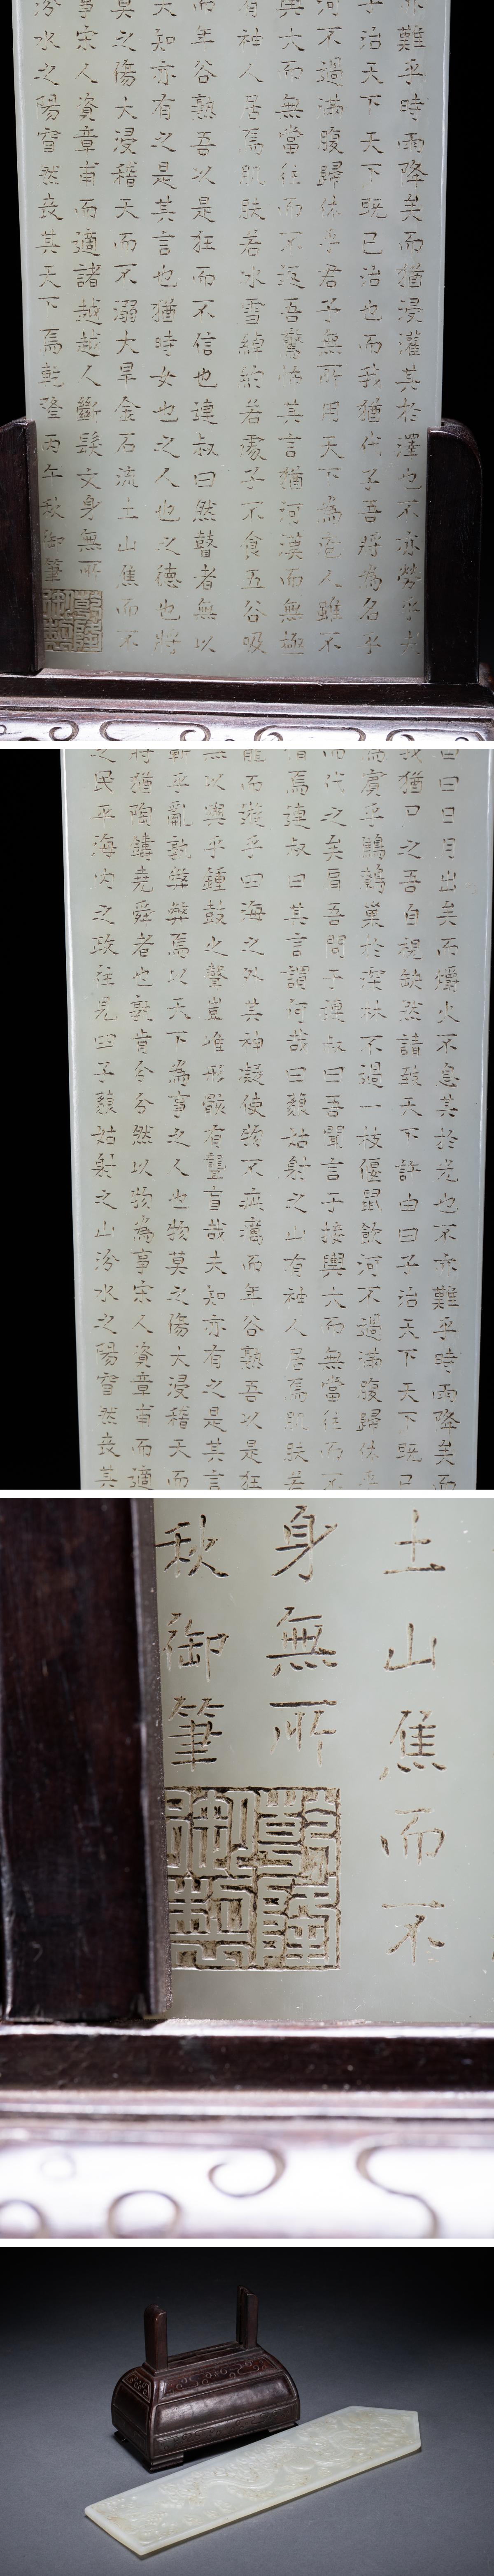 亦難乎時雨降矣而猶浸灌其於澤也不亦勞乎夫
子治天下天下既已治也而我猶代子吾將為名乎
河不過滿腹歸休乎君予無所用天下為庖人雖不
輿大而無當往而不返吾驚怖其言猶河漢而無極
有神人居焉肌肤若水雪綽約若處子不食五谷吸
而年谷熟吾以是狂而不信也連叔曰然瞽者無以
夫知亦有之是其言也猶時女也之人也之德也將
莫之傷大浸稽天而不溺大旱金石流土山焦而不
事宋人資章甫而適諸越越人斷髮文身無所
汾水之陽窅然喪其天下焉乾隆丙午秋御筆
乾隆御製
曰日月出矣而爝火不息其於光也不亦難乎時雨降矣而
我猶尸之吾自視缺然請致天下許由曰子治天下天下既已
為賓乎鷦鷯巢於深林不過一枝偃鼠飲河不過滿腹歸休乎
而代之矣肩吾問于連叔曰吾聞言于接輿大而無當往而不
焉連叔曰其言謂何哉曰藐姑射之山有神人居焉肌肤若
龍而遊乎曰海之外其神凝使物不疵癘而年谷熟吾以是狂
無以與乎鍾鼓之聲豈唯形骸有聾盲哉夫知亦有之是其言
蘄乎亂孰弊弊焉以天下為事之人也物莫之傷大浸稽天而
將猶陶鑄堯舜者也孰肯分分然以物為事宋人資章甫而適
之民平海內之政往見曰子藐姑射之山汾水之陽窅然喪其
土山焦而不
身無所
秋御筆
乾隆御製